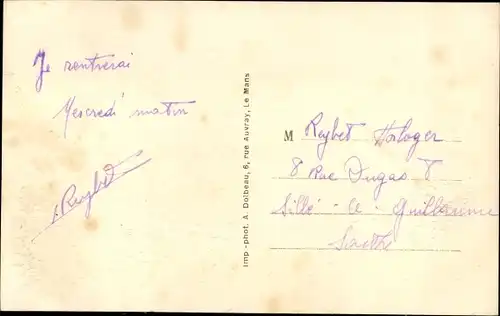 Je rentrerai
Mercredi matin
Reybet
Imp.-phot. A. Dolbeau, 6, rue Auvray, Le Mans
M Reybet Horloger
8 Rue Dugas 8
Sillé-le-Guillaume
Sarthe